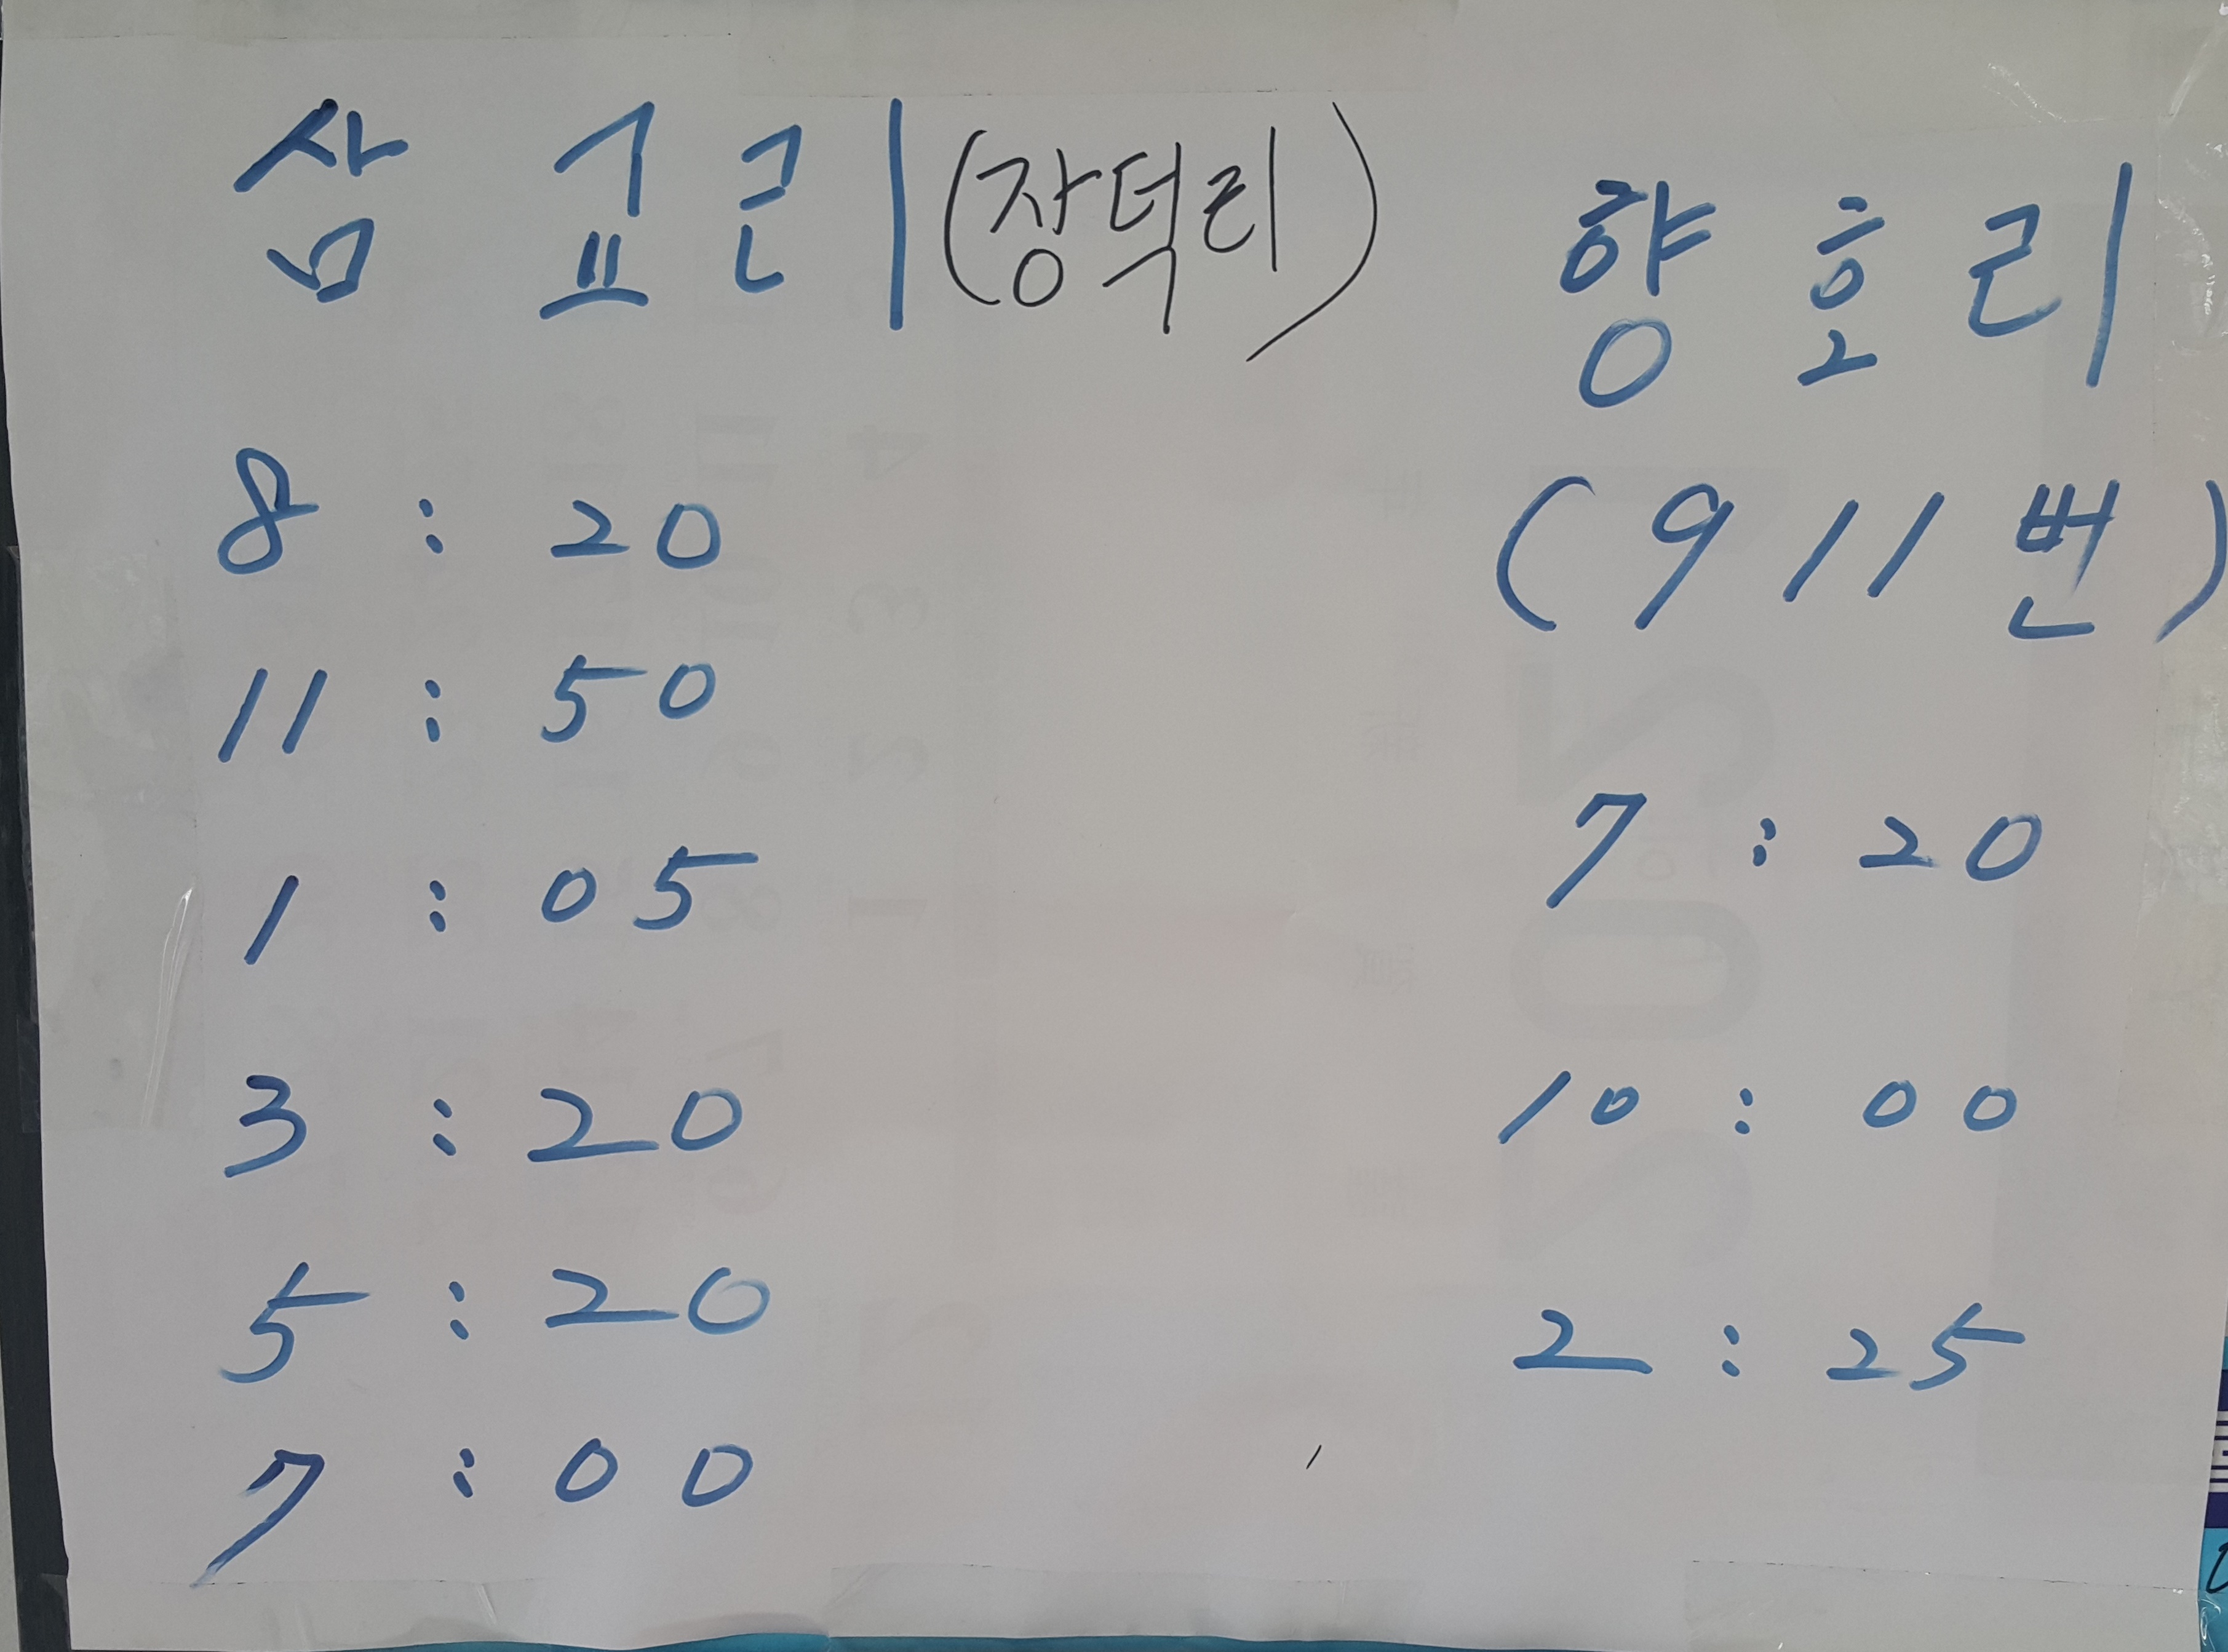 삼교리 (장덕리)
8 : 20
11 : 50
1 : 05
3 : 20
5 : 20
7 : 00
향호리
(911번)
7 : 20
10 : 00
2 : 25